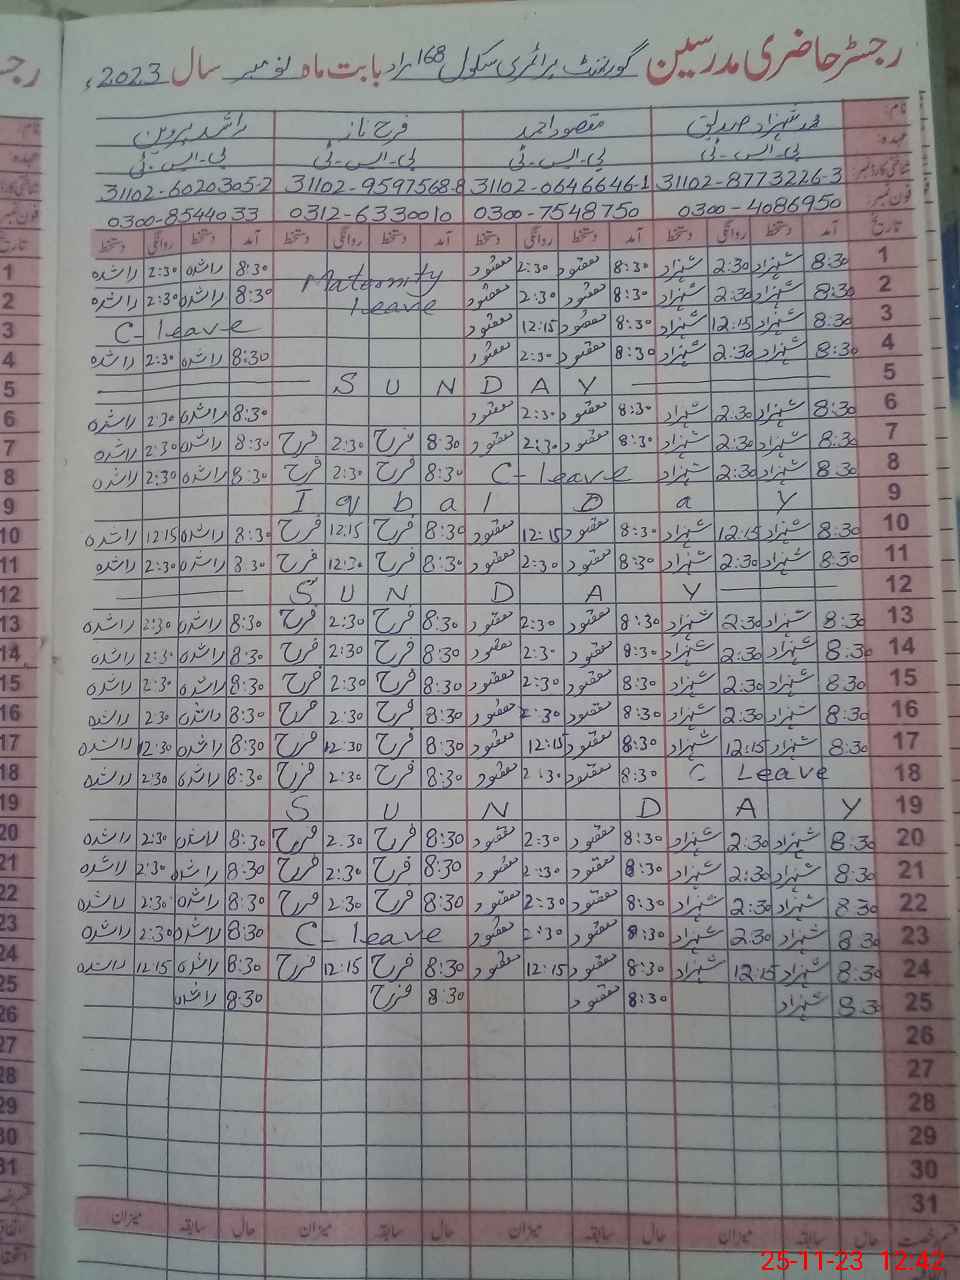 رجسٹر حاضری مدرسین گورنمنٹ پرائمری سکول 168 مراد بابت ماہ نومبر سال 2023ء
نام: محمد شہزاد صدیق مقصود احمد فرح ناز راشدہ پروین
عہدہ: پی-ایس-ٹی پی-ایس-ٹی پی-ایس-ٹی پی-ایس-ٹی
شناختی کارڈ نمبر: 31102-8773226-3 31102-0646646-1 31102-9597568-8 31102-6020305-2
فون نمبر: 0300-4086950 0300-7548750 0312-6330010 0300-8544033
تاریخ آمد دستخط روانگی دستخط آمد دستخط روانگی دستخط آمد دستخط روانگی دستخط آمد دستخط روانگی دستخط
1 8:30 شہزاد 2:30 شہزاد 8:30 مقصود 2:30 مقصود Maternity 8:30 راشدہ 2:30 راشدہ
2 8:30 شہزاد 2:30 شہزاد 8:30 مقصود 2:30 مقصود Leave 8:30 راشدہ 2:30 راشدہ
3 8:30 شہزاد 12:15 شہزاد 8:30 مقصود 12:15 مقصود C- Leave
4 8:30 شہزاد 2:30 شہزاد 8:30 مقصود 2:30 مقصود 8:30 راشدہ 2:30 راشدہ
5 S U N D A Y
6 8:30 شہزاد 2:30 شہزاد 8:30 مقصود 2:30 مقصود 8:30 راشدہ 2:30 راشدہ
7 8:30 شہزاد 2:30 شہزاد 8:30 مقصود 2:30 مقصود 8:30 فرح 2:30 فرح 8:30 راشدہ 2:30 راشدہ
8 8:30 شہزاد 2:30 شہزاد C- Leave 8:30 فرح 2:30 فرح 8:30 راشدہ 2:30 راشدہ
9 I q b a l D a y
10 8:30 شہزاد 12:15 شہزاد 8:30 مقصود 12:15 مقصود 8:30 فرح 12:15 فرح 8:30 راشدہ 12:15 راشدہ
11 8:30 شہزاد 2:30 شہزاد 8:30 مقصود 2:30 مقصود 8:30 فرح 12:30 فرح 8:30 راشدہ 2:30 راشدہ
12 S U N D A Y
13 8:30 شہزاد 2:30 شہزاد 8:30 مقصود 2:30 مقصود 8:30 فرح 2:30 فرح 8:30 راشدہ 2:30 راشدہ
14 8:30 شہزاد 2:30 شہزاد 8:30 مقصود 2:30 مقصود 8:30 فرح 2:30 فرح 8:30 راشدہ 2:30 راشدہ
15 8:30 شہزاد 2:30 شہزاد 8:30 مقصود 2:30 مقصود 8:30 فرح 2:30 فرح 8:30 راشدہ 2:30 راشدہ
16 8:30 شہزاد 2:30 شہزاد 8:30 مقصود 2:30 مقصود 8:30 فرح 2:30 فرح 8:30 راشدہ 2:30 راشدہ
17 8:30 شہزاد 12:15 شہزاد 8:30 مقصود 12:15 مقصود 8:30 فرح 12:30 فرح 8:30 راشدہ 12:30 راشدہ
18 C Leave 8:30 مقصود 2:30 مقصود 8:30 فرح 2:30 فرح 8:30 راشدہ 2:30 راشدہ
19 S U N D A Y
20 8:30 شہزاد 2:30 شہزاد 8:30 مقصود 2:30 مقصود 8:30 فرح 2:30 فرح 8:30 راشدہ 2:30 راشدہ
21 8:30 شہزاد 2:30 شہزاد 8:30 مقصود 2:30 مقصود 8:30 فرح 2:30 فرح 8:30 راشدہ 2:30 راشدہ
22 8:30 شہزاد 2:30 شہزاد 8:30 مقصود 2:30 مقصود 8:30 فرح 2:30 فرح 8:30 راشدہ 2:30 راشدہ
23 8:30 شہزاد 2:30 شہزاد 8:30 مقصود 2:30 مقصود C- Leave 8:30 راشدہ 2:30 راشدہ
24 8:30 شہزاد 12:15 شہزاد 8:30 مقصود 12:15 مقصود 8:30 فرح 12:15 فرح 8:30 راشدہ 12:15 راشدہ
25 8:30 شہزاد 8:30 مقصود 8:30 فرح 8:30 راشدہ
26
27
28
29
30
31
قسم رخصت حال سابقہ میزان حال سابقہ میزان حال سابقہ میزان حال سابقہ میزان
25-11-23 12:42